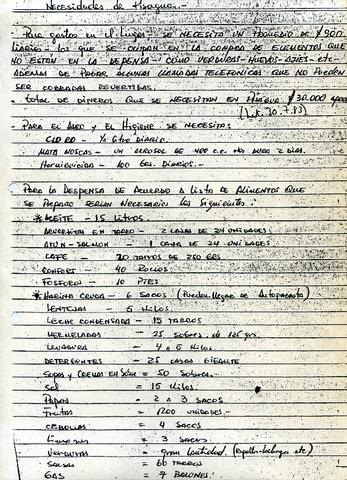 Necesidades de Pisagua.-
Para gastos en el Lugar - SE NECESITO UN PROMEDIO DE $900
DIARIOS - los que SE OCUPAN EN LA COMPRA DE ELEMENTOS QUE
NO ESTAN EN LA DEPENSA - COMO VERDURAS-HUEVOS-AJIES-etc-
ADEMAS DE PAGAR ALGUNAS LLAMADAS TELEFONICAS QUE NO PUEDEN
SER COBRADAS REVERTIDAS.
total DE DINEROS QUE SE NECESITAN EN PISAGUA $30.000
PARA EL ASEO Y EL HIGIENE SE NECESITA:
CLORO - Litro DIARIO.
MATA MOSCAS - UN AEROSOL DE 400 c.c. DURA 2 DIAS.
Hormiguicida - 100 Grs. DIARIOS.-
Para la DESPENSA DE ACUERDO A lista DE ALIMENTOS QUE
SE PREPARO SERIAN NECESARIOS los Siguientes:
*ACEITE - 15 Litros.
EN TARRO - 2 CAJAS DE 24 UNIDADES
ATUN-SALMON - 1 CAJA DE 24 UNIDADES
CAFE 20 TARROS DE 250 GRS
CONFORT - 40 ROLLOS
FOSFORO - 10 PTES
*HARINA CRUDA - 6 SACOS (Pueden llegar de
LENTEJAS - 5 Kilos
LECHE CONDENSADA - 15 TARROS
MERMELADAS - 25 Sobres de 125 grs.
LEVADURA - 4 a 5 Kilos.
DETERGENTES - 25 CAJAS GIGANTE
SOPAS Y CREMAS EN = 50 Sobres.
Sal = 15 Kilos.
PAPAS = 2 a 3 SACOS
Frutas = 1200 UNIDADES.-
CEBOLLAS = 4 SACOS
= 3 SACOS.
VERDURAS = gran Cantidad. (Repollo-Lechugas etc)
SALSAS = 60 TARROS
GAS = 7 BALONES.